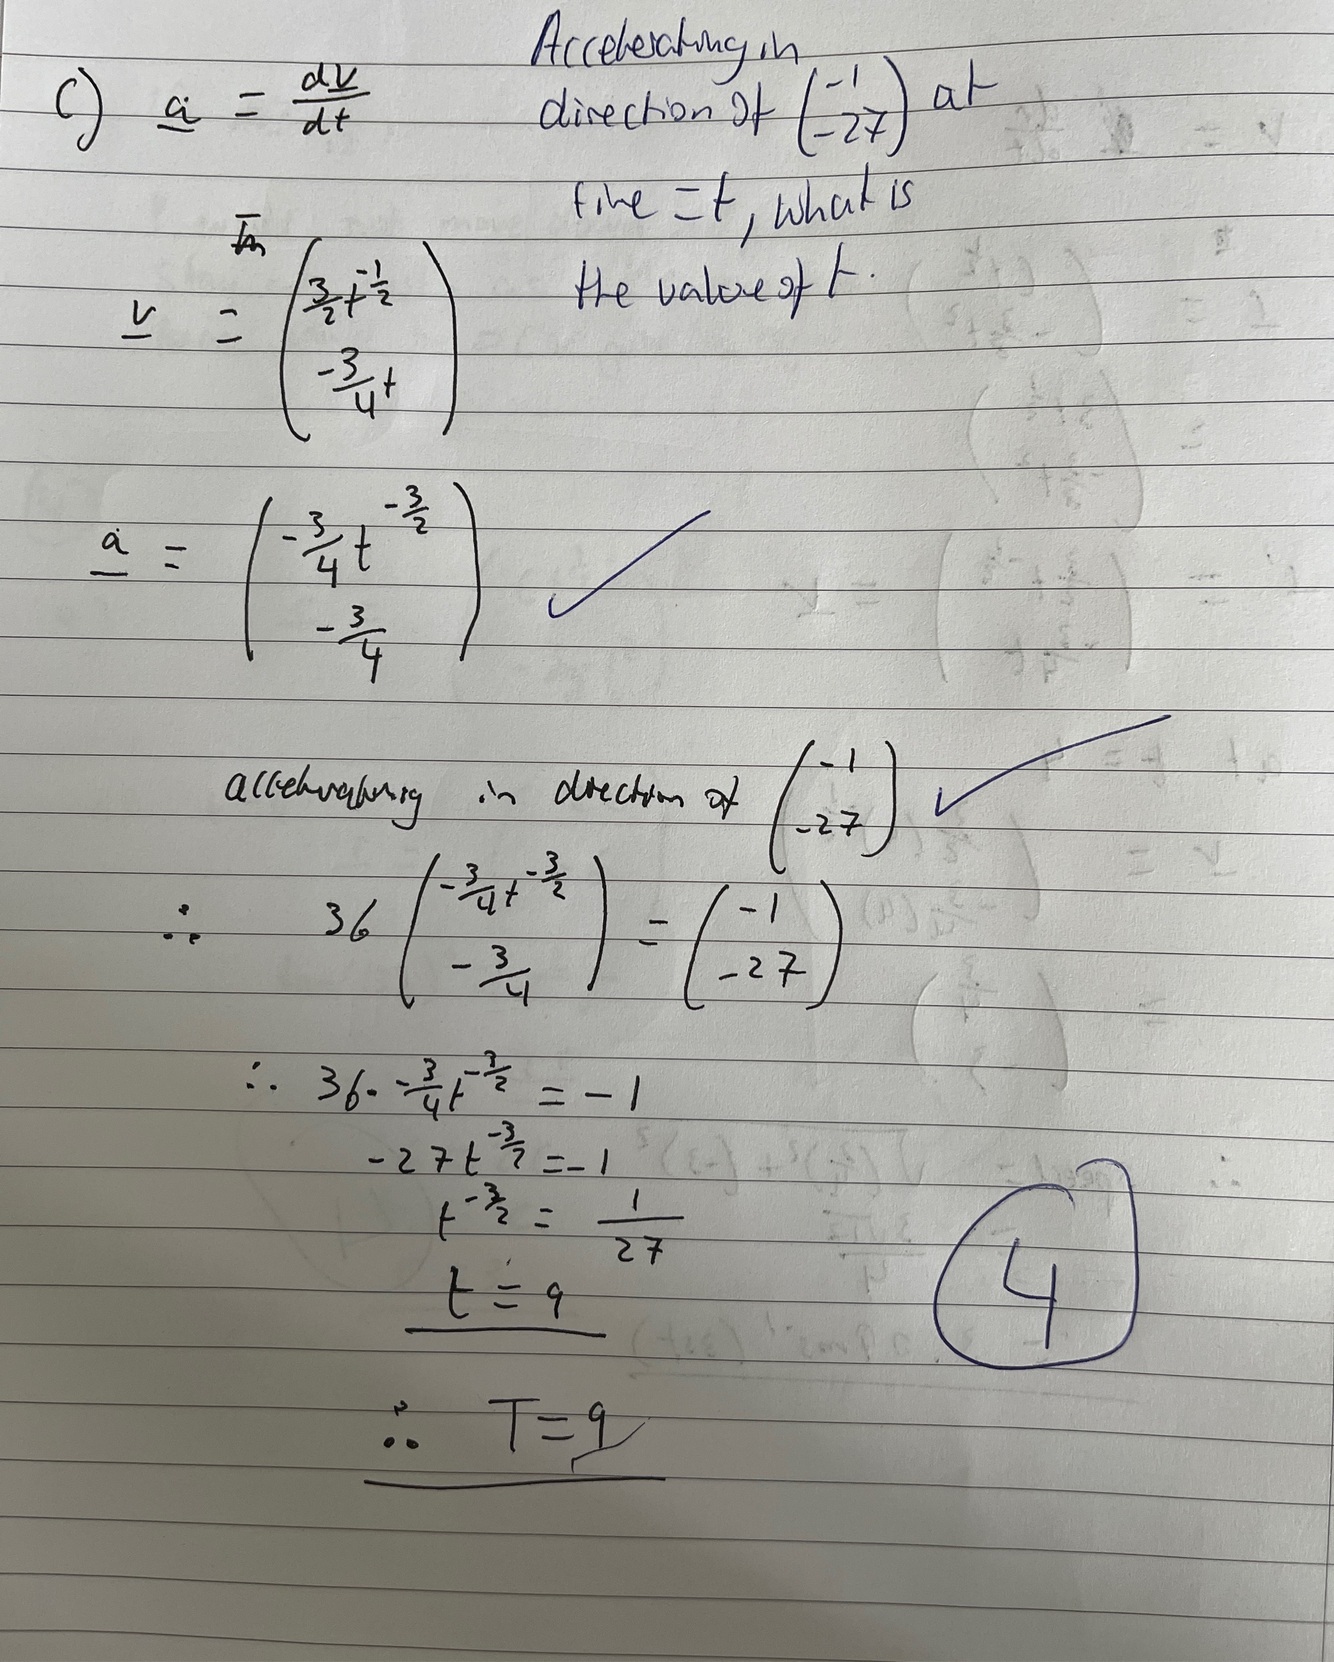 Accelerating in
direction of (-1 -27) at
time = t, what is
the value of t.
c) a = dv/dt
v = (3/2 t^-1/2
-3/4 t)
a = (-3/4 t^-3/2
-3/4)
accelerating in direction of (-1 -27)
∴ 36 (-3/4 t^-3/2 -3/4) = (-1 -27)
∴ 36 · -3/4 t^-3/2 = -1
-27 t^-3/2 = -1
t^-3/2 = 1/27
t = 9
4
∴ T = 9